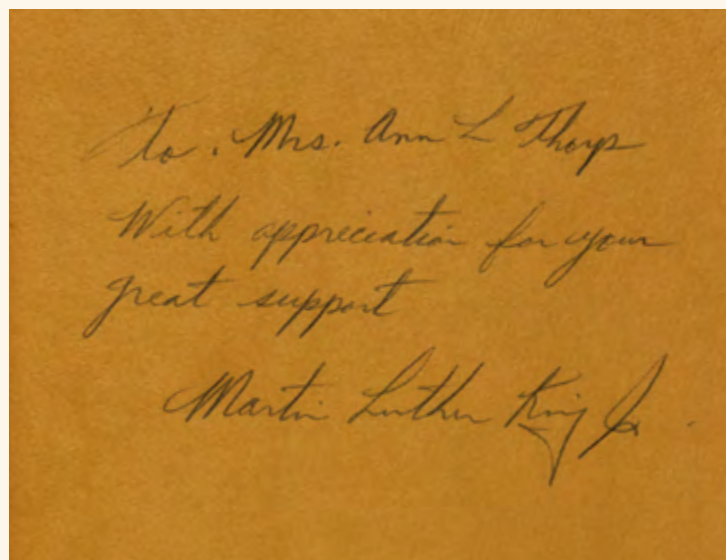 To. Mrs. Ann L Thorp
With appreciation for your
great support
Martin Luther King Jr.